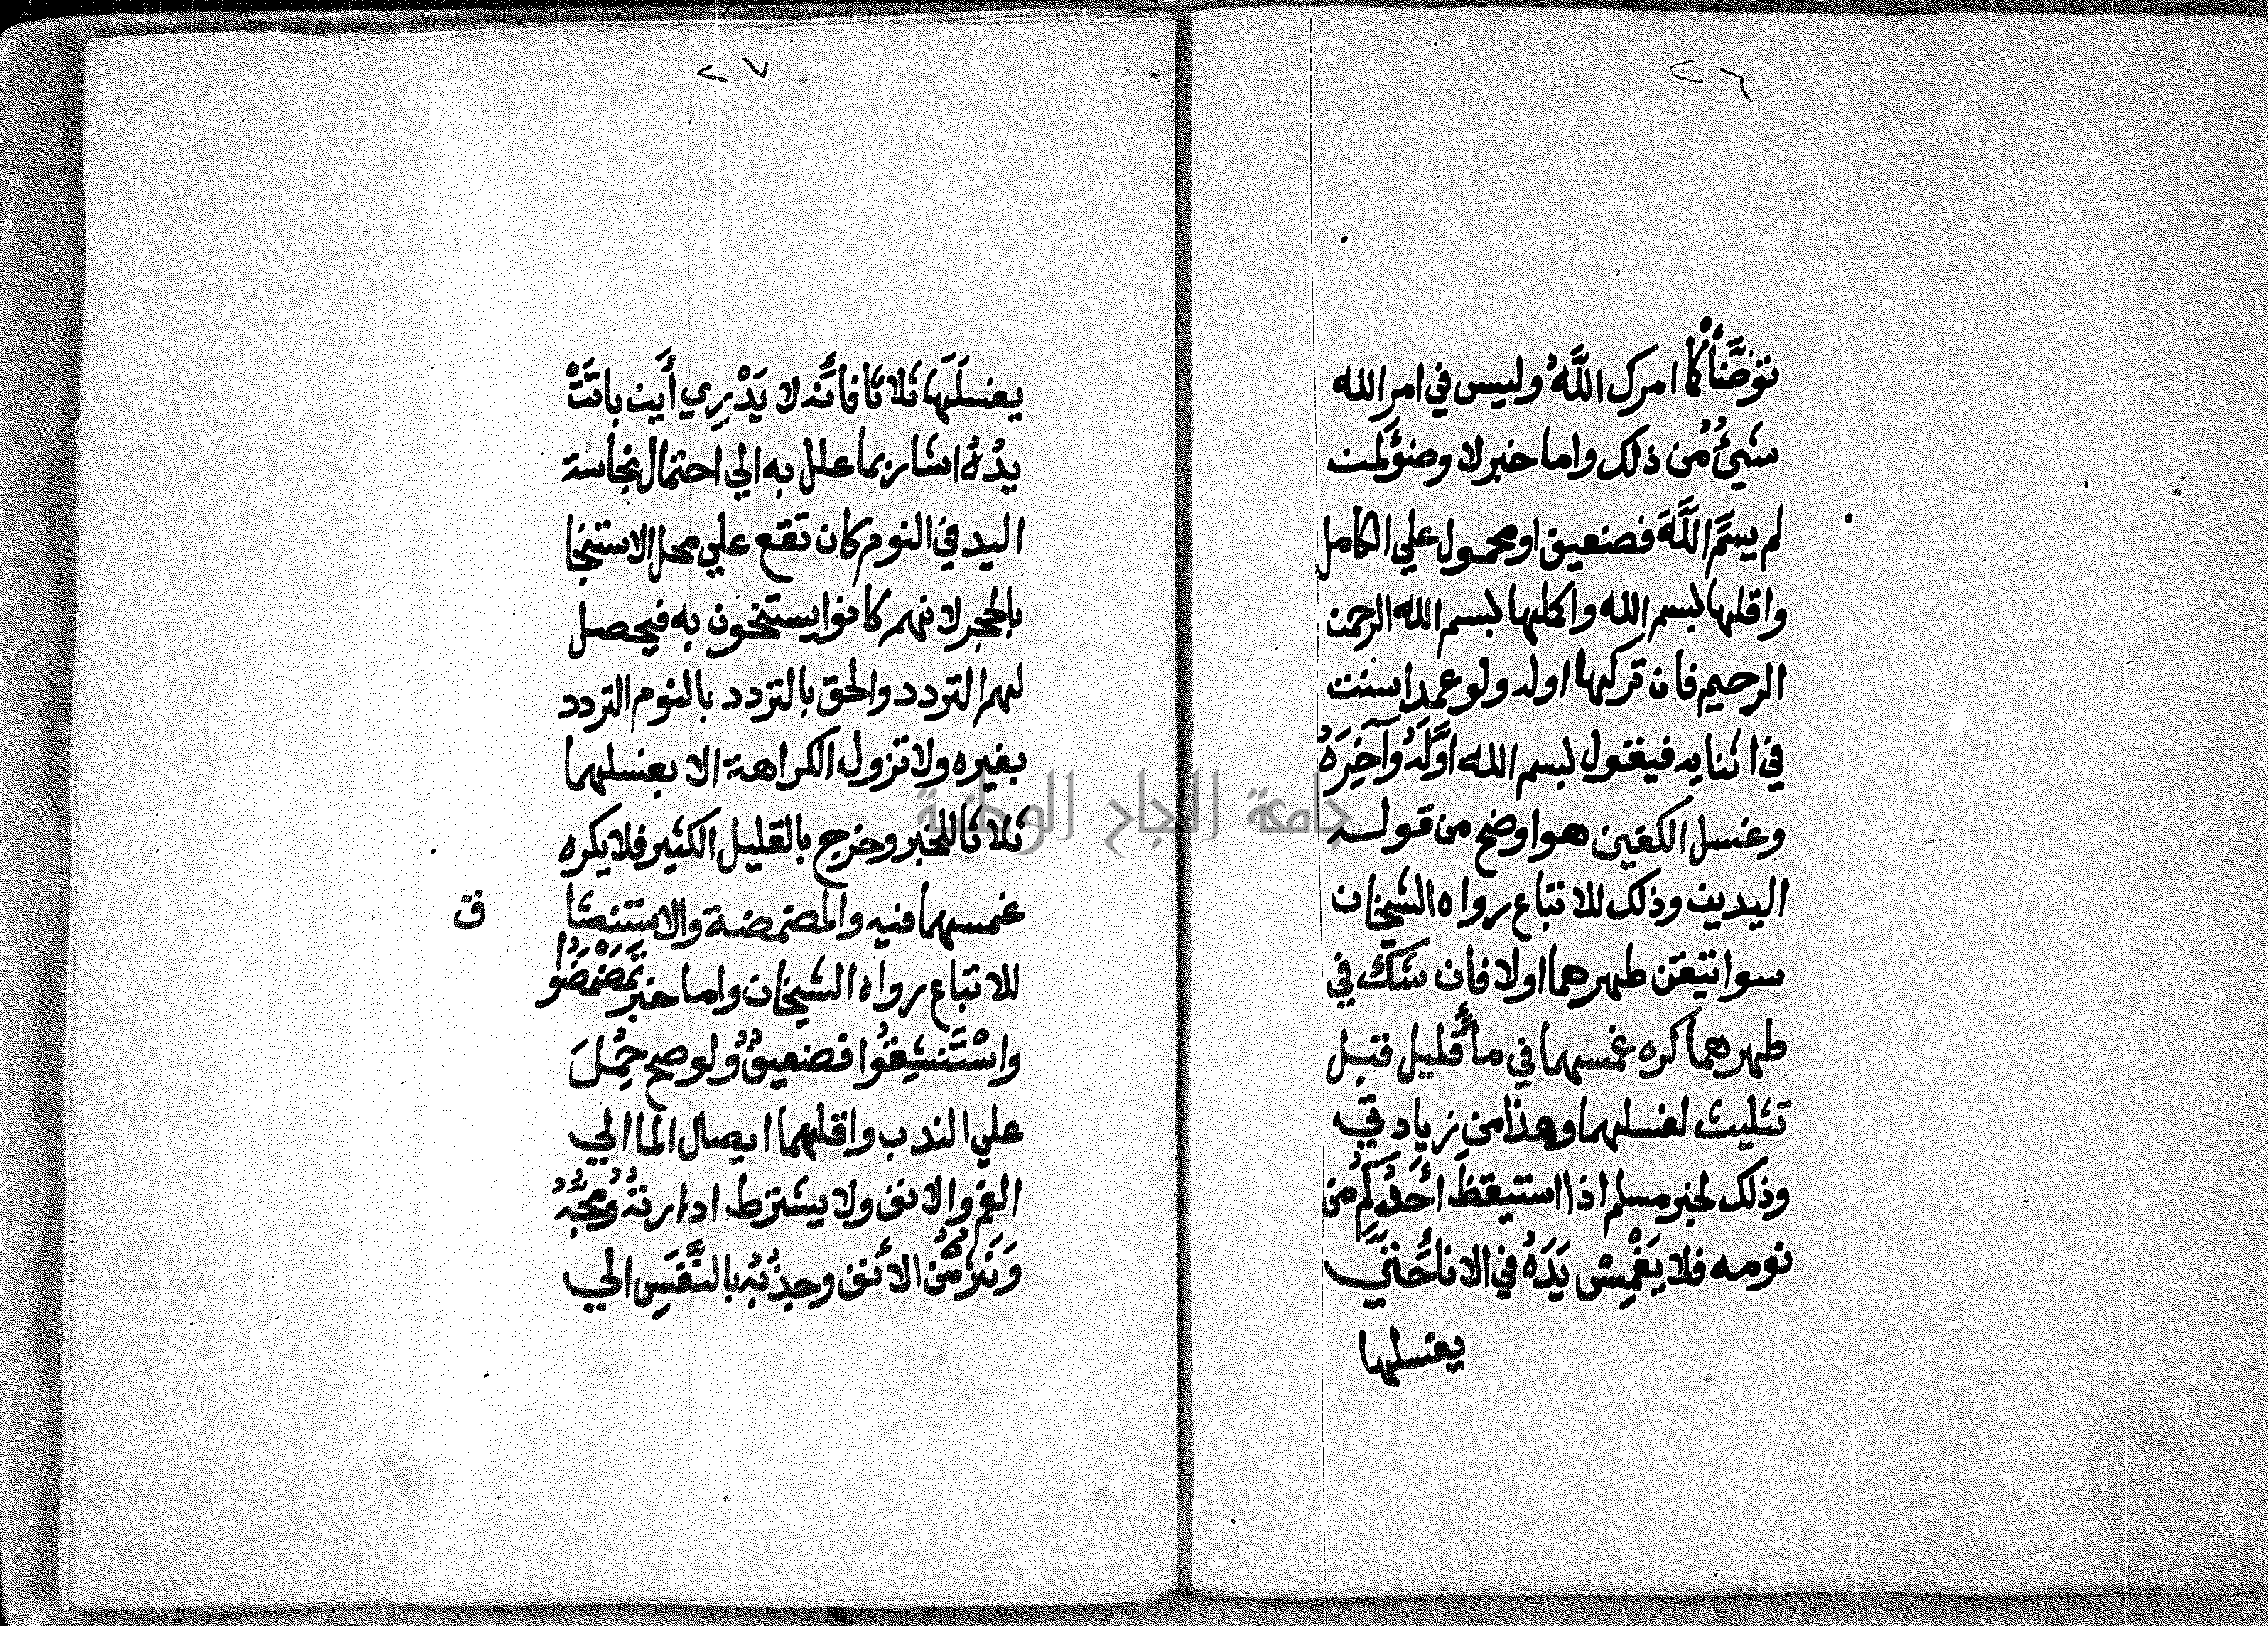 ٢٦
توضَّأْ كما امرك اللَّهُ وليس في امر الله
شيءٌ من ذلك واما خبر لا وضوٌ لمن
لم يسمِّ اللَّهَ فضعيف او محمول علي الكامل
واقلها بسم الله واكملها بسم الله الرحمن
الرحيم فان تركها اوله ولو عمدا سنت
في اثنايه فيقول بسم الله اوَّلَهُ وآخِرَهُ
وغسل الكفين هو اوضح من قوله
اليدين وذلك للاتباع رواه الشيخان
سوا تيقن طهرهما اولا فان شك في
طهرهما كره غمسهما في ماءٍ قليل قبل
تثليث لغسلهما وهذا من زيادتي
وذلك لخبر مسلم اذا استيقظَ أحَدُكُم من
نومه فلا يَغْمِسْ يَدَهُ في الاناءِ حَتَّي
يغسلها
٢٧
يغسلَهَا ثلاثا فانَّه لا يَدْرِي أَين باتَتْ
يدُهُ اشار بما علل به الي احتمال نجاسة
اليد في النوم كان تقع علي محل الاستنجا
بالحجر لانهم كانوا يستنجون به فيحصل
لهم التردد والحق بالتردد بالنوم التردد
بغيره ولا تزول الكراهة الا بغسلهما
ثلاثا للخبر وخرج بالقليل الكثير فلا يكره
غمسهما فيه والمضمضة والاستنشا
ق
للاتباع رواه الشيخان واما خبر تَمَضْمَضُوا
واسْتَنشِقُوا فضعيفٌ ولو صح حُمِلَ
علي الندب واقلهما ايصال الما الي
الفم والانف ولا يشترط ادارتهُ ومجُّهُ
وَنَثْرُهُ من الأنف وجذبُهُ بالنَّفَسِ الي
جامعة النجاح الوطنية